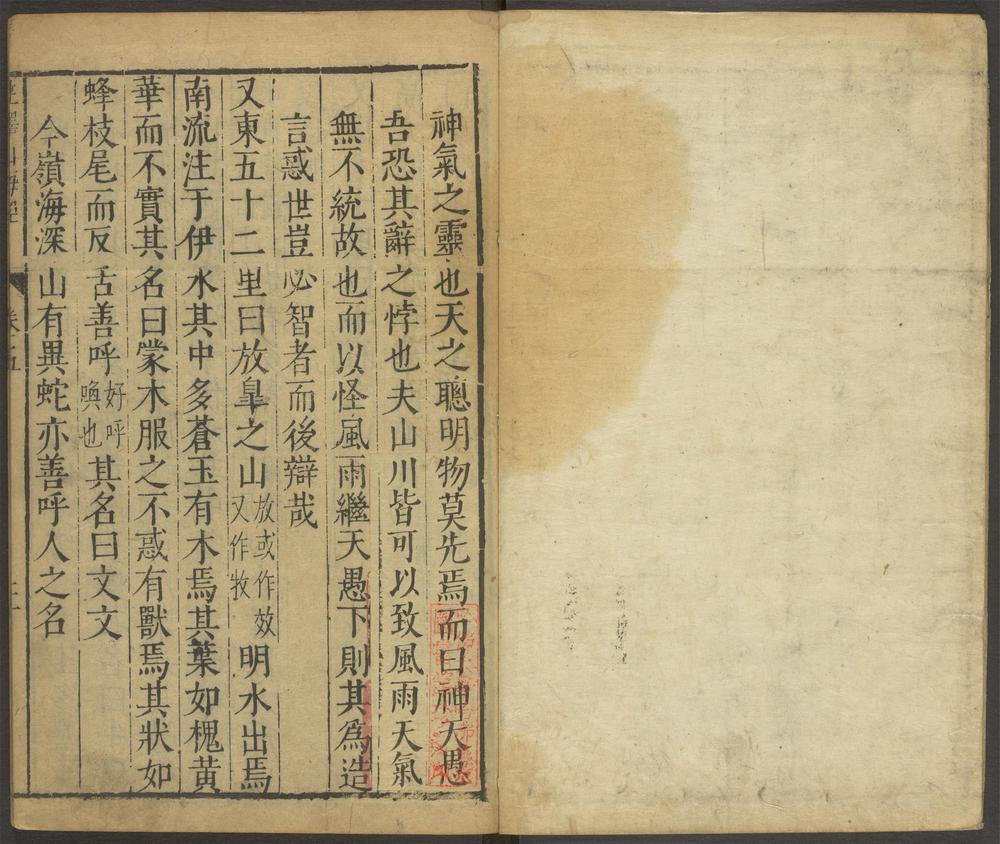 神氣之靈也天之聰明物莫先焉而曰神天愚
吾恐其辭之悖也夫山川皆可以致風雨天氣
無不統故也而以怪風雨繼天愚下則其爲造
言惑世豈必智者而後辯哉
又東五十二里曰放臯之山放或作效又作牧明水出焉
南流注于伊水其中多蒼玉有木焉其葉如槐黃
華而不實其名曰蒙木服之不惑有獸焉其狀如
蜂枝尾而反舌善呼好呼喚也其名曰文文
今嶺海深山有異蛇亦善呼人之名